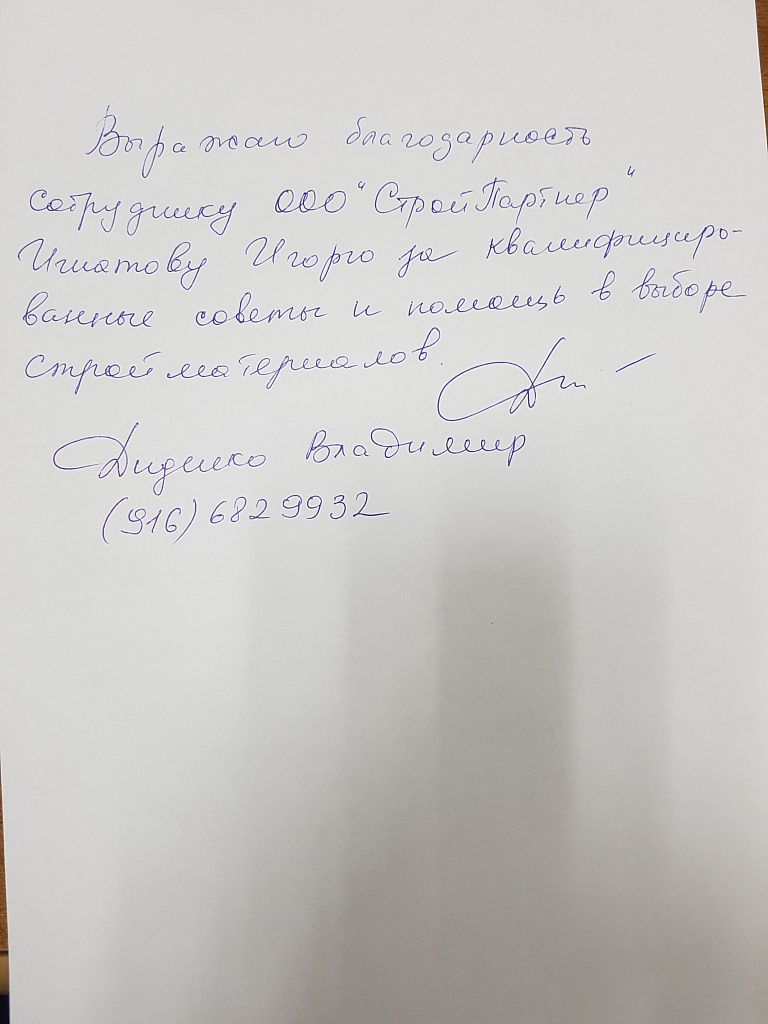 Выражаю благодарность
сотруднику ООО "СтройПартнер"
Игнатову Игорю за квалифициро-
ванные советы и помощь в выборе
стройматериалов.
Диденко Владимир
(916) 6829932